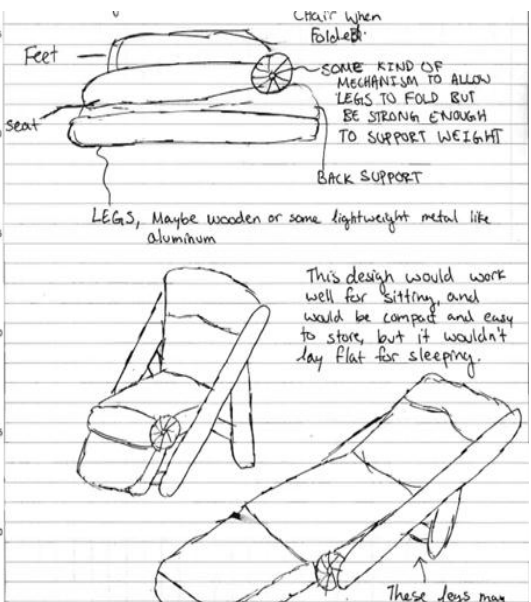 Chair when
Folded.
Feet
SOME KIND OF
MECHANISM TO ALLOW
LEGS TO FOLD BUT
BE STRONG ENOUGH
TO SUPPORT WEIGHT
seat
BACK SUPPORT
LEGS, Maybe wooden or some lightweight metal like
aluminum
This design would work
well for sitting, and
would be compact and easy
to store, but it wouldn't
lay flat for sleeping.
These legs may